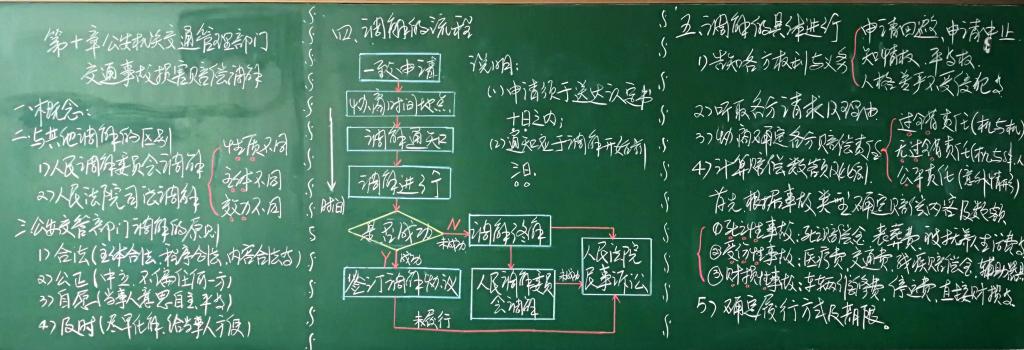 第十章公安机关交通管理部门
交通事故损害赔偿调解
一、概念:
二、与其他调解的区别
1)人民调解委员会调解
2)人民法院司法调解
性质不同
主体不同
效力不同
三、公安交管部门调解的原则
1)合法(主体合法、程序合法、内容合法等)
2)公正(中立、不偏任何一方)
3)自愿(当事人意思自主、平等)
4)及时(尽早化解、给当事人方便)
四、调解的流程
一致申请
协商时间地点
调解通知
调解进行
时间
是否成功
N
未成功
调解终结
Y
成功
签订调解协议
人民调解委员
会调解
未成功
人民法院
民事诉讼
未履行
说明:
(1)申请须于送达认定书
十日之内;
(2)通知应于调解开始前
三日.
五、调解的具体进行
1)告知各方权利与义务
申请回避、申请中止
知情权、平等权
人格尊严不受侵犯等
2)听取各方请求以及理由
3)协商确定各方赔偿责任
过错责任(机与机)
无过错责任(机与非、人
公平责任(意外情形)
4)计算赔偿数额以及比例
首先根据事故类型确定赔偿内容及数额
①死亡性事故:死亡赔偿金、丧葬费、被扶养人生活费
②受伤性事故:医疗费、交通费、残疾赔偿金、辅助器具
③财损性事故:车辆修复费、停运费、直接财损等
5)确定履行方式及期限。